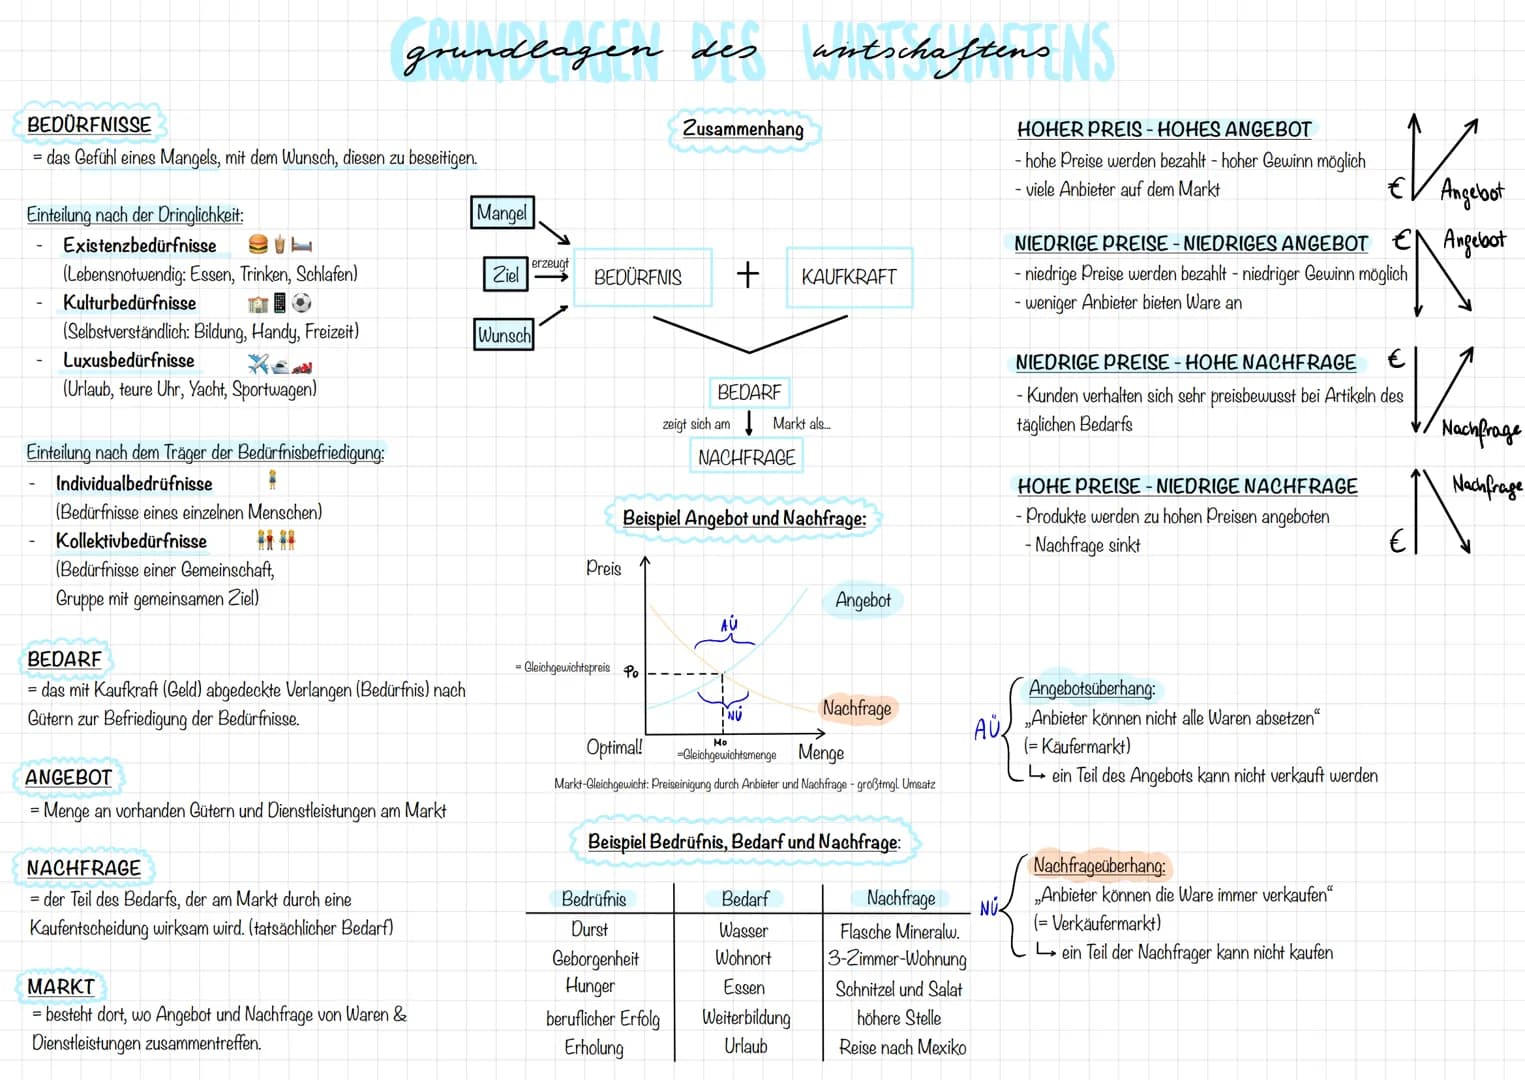 GRUNDLAGEN DES WIRTSCHAFTENS
grundlagen des wirtschaftens
BEDÜRFNISSE
= das Gefühl eines Mangels, mit dem Wunsch, diesen zu beseitigen.
Einteilung nach der Dringlichkeit:
- Existenzbedürfnisse
(Lebensnotwendig: Essen, Trinken, Schlafen)
- Kulturbedürfnisse
(Selbstverständlich: Bildung, Handy, Freizeit)
- Luxusbedürfnisse
(Urlaub, teure Uhr, Yacht, Sportwagen)
Einteilung nach dem Träger der Bedürfnisbefriedigung:
- Individualbedrüfnisse
(Bedürfnisse eines einzelnen Menschen)
- Kollektivbedürfnisse
(Bedürfnisse einer Gemeinschaft,
Gruppe mit gemeinsamen Ziel)
BEDARF
= das mit Kaufkraft (Geld) abgedeckte Verlangen (Bedürfnis) nach
Gütern zur Befriedigung der Bedürfnisse.
ANGEBOT
= Menge an vorhanden Gütern und Dienstleistungen am Markt
NACHFRAGE
= der Teil des Bedarfs, der am Markt durch eine
Kaufentscheidung wirksam wird. (tatsächlicher Bedarf)
MARKT
= besteht dort, wo Angebot und Nachfrage von Waren &
Dienstleistungen zusammentreffen.
Zusammenhang
Mangel
Ziel
Wunsch
erzeugt
BEDÜRFNIS
+
KAUFKRAFT
BEDARF
zeigt sich am Markt als...
NACHFRAGE
Beispiel Angebot und Nachfrage:
Preis
Angebot
AÜ
= Gleichgewichtspreis P₀
NÜ
Nachfrage
Optimal!
M₀
=Gleichgewichtsmenge
Menge
Markt-Gleichgewicht: Preiseinigung durch Anbieter und Nachfrage - größtmgl. Umsatz
Beispiel Bedrüfnis, Bedarf und Nachfrage:
Bedrüfnis Bedarf Nachfrage
Durst Wasser Flasche Mineralw.
Geborgenheit Wohnort 3-Zimmer-Wohnung
Hunger Essen Schnitzel und Salat
beruflicher Erfolg Weiterbildung höhere Stelle
Erholung Urlaub Reise nach Mexiko
HOHER PREIS - HOHES ANGEBOT
- hohe Preise werden bezahlt - hoher Gewinn möglich
- viele Anbieter auf dem Markt
€ Angebot
NIEDRIGE PREISE - NIEDRIGES ANGEBOT
- niedrige Preise werden bezahlt - niedriger Gewinn möglich
- weniger Anbieter bieten Ware an
€ Angebot
NIEDRIGE PREISE - HOHE NACHFRAGE
- Kunden verhalten sich sehr preisbewusst bei Artikeln des
täglichen Bedarfs
€ Nachfrage
HOHE PREISE - NIEDRIGE NACHFRAGE
- Produkte werden zu hohen Preisen angeboten
- Nachfrage sinkt
€ Nachfrage
AÜ
Angebotsüberhang:
„Anbieter können nicht alle Waren absetzen“
(= Käufermarkt)
↳ ein Teil des Angebots kann nicht verkauft werden
NÜ
Nachfrageüberhang:
„Anbieter können die Ware immer verkaufen“
(= Verkäufermarkt)
↳ ein Teil der Nachfrager kann nicht kaufen